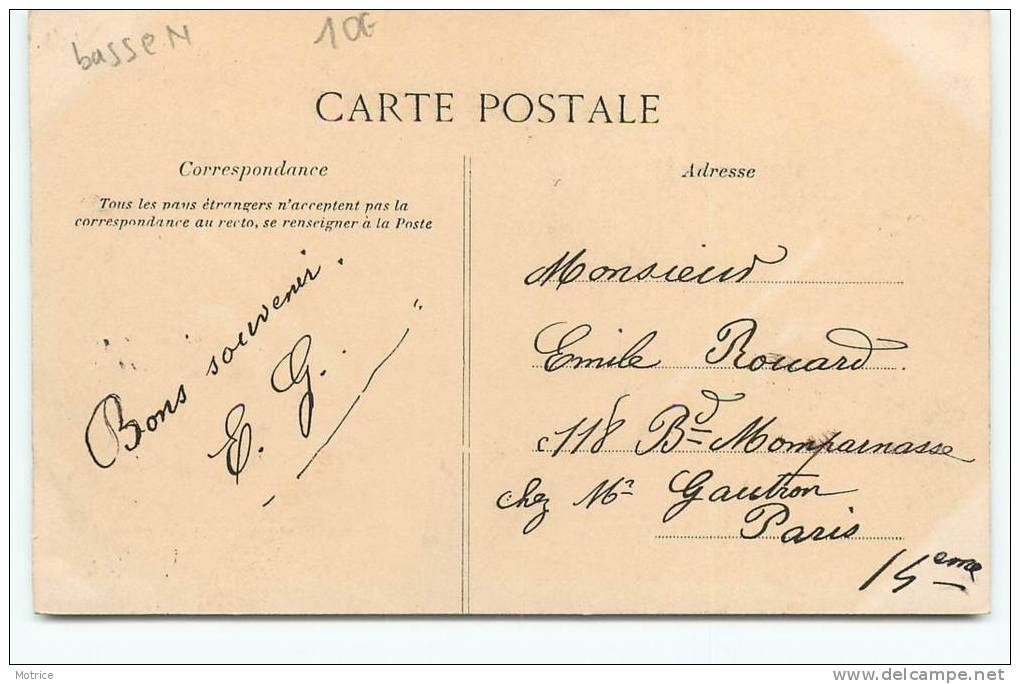 basse N
10€
CARTE POSTALE
Correspondance
Tous les pays étrangers n'acceptent pas la
correspondance au recto, se renseigner à la Poste
Bons souvenir.
E. G.
Adresse
Monsieur
Emile Rouard
118 Bd Momparnasse
chez Mr Gautron
Paris
15eme
Motrice
www.delcampe.net